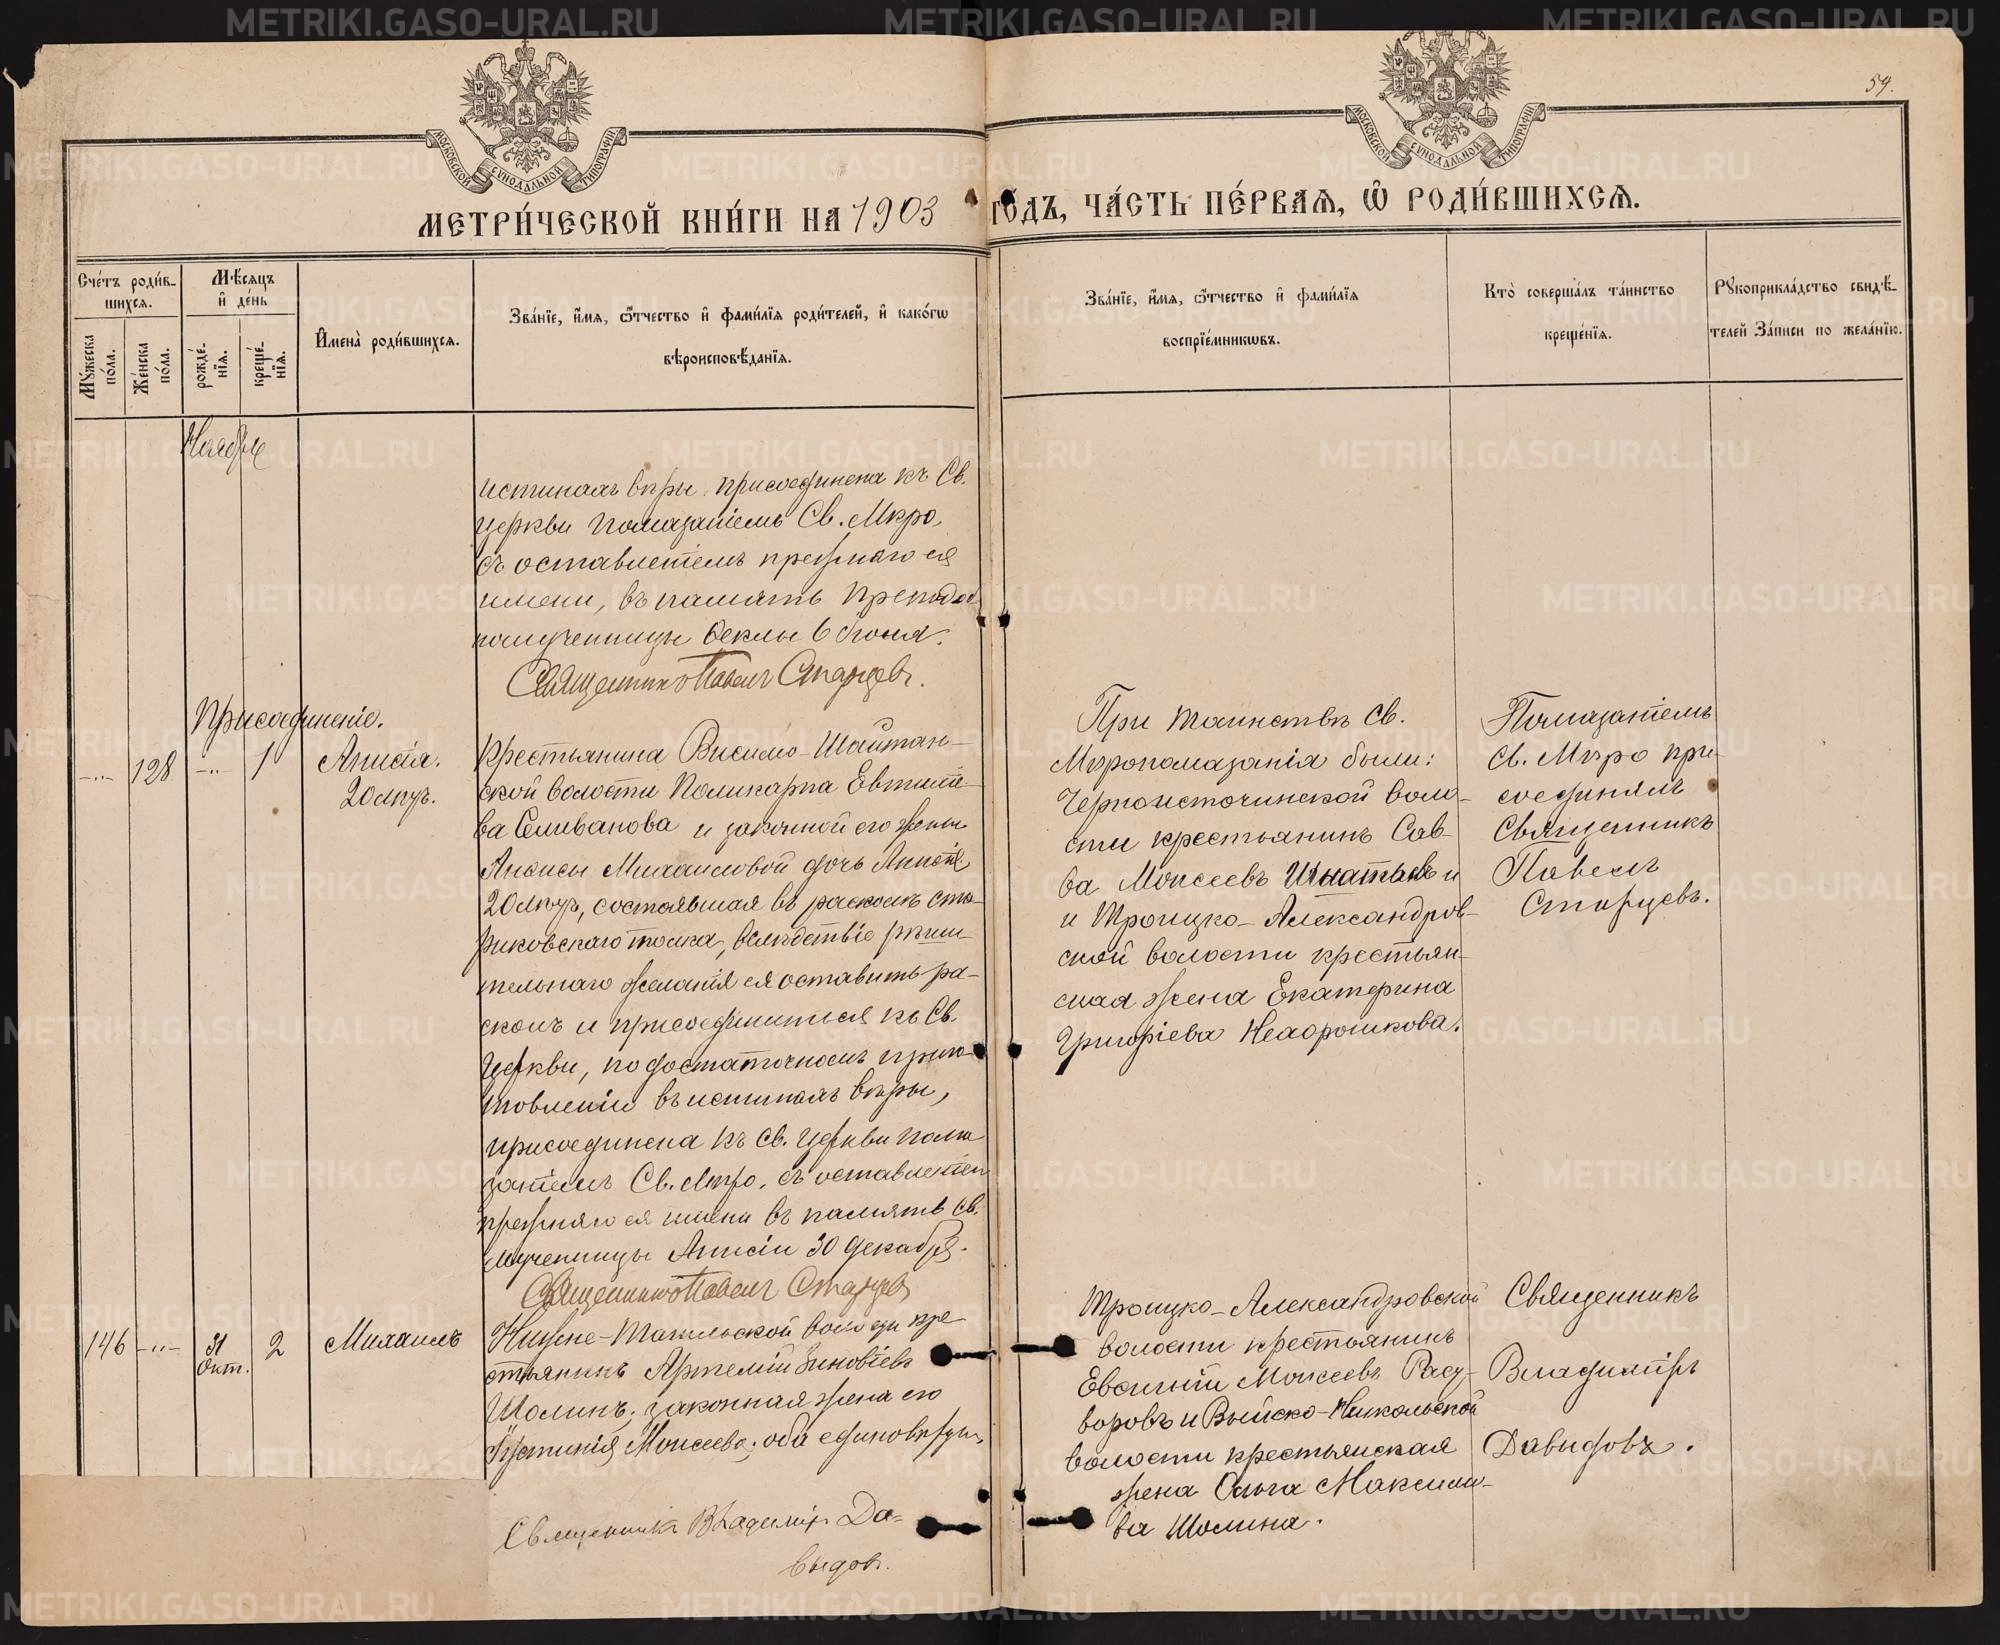 МОСКОВСКОЙ СѴНОДАЛЬНОЙ ТИПОГРАФІИ
МОСКОВСКОЙ СѴНОДАЛЬНОЙ ТИПОГРАФІИ
54.
МЕТРИ́ЧЕСКОЙ КНИ́ГИ НА 1903 ГО́ДЪ, ЧА́СТЬ ПЕ́РВАѦ, Ѡ҆ РОДИ́ВШИХСѦ.
Сче́тъ роди́в-
шихсѧ.
Мꙋ́жеска по́ла.
Же́нска по́ла.
Мѣ́сѧцъ
и҆ де́нь
рожде́-
нїѧ.
креще́-
нїѧ.
И҆мена̀ роди́вшихсѧ.
Зва́нїе, и҆́мѧ, ѻ҆́тчество и҆ фами́лїѧ роди́телей, и҆ како́гѡ
вѣроисповѣ́данїѧ.
Зва́нїе, и҆́мѧ, ѻ҆́тчество и҆ фами́лїѧ
воспрїе́мникѡвъ.
Кто̀ соверша́лъ та́инство
креще́нїѧ.
Рꙋкоприкла́дство свидѣ́-
телей за́писи по жела́нїю.
Ноябрь
истинахъ вѣры, присоединена къ Св.
Церкви помазаніемъ Св. Мѵро,
съ оставленіемъ прежняго ея
имени, въ память преподоб
номученицы Ѳеклы 6 Іюня.
Священникъ Павелъ Старцевъ.
Присоединеніе.
-"- 128 -"- 1 Анисія.
20 лѣтъ.
Крестьянина Висимо-Шайтан-
ской волости Поликарпа Евтиѣ-
ва Селиванова и законной его жены
Анѳисы Михаиловой дочь Анисія
20 лѣтъ, состоявшая въ расколѣ ста-
риковскаго толка, вслѣдствіе рѣши-
тельнаго желанія ея оставить ра-
сколъ и присоединиться къ Св.
Церкви, по достаточномъ приго
товленіи въ истинахъ вѣры,
присоединена къ Св. Церкви пома
заніемъ Св. Мѵро, съ оставленіем
прежняго ея имени въ память Св.
мученицы Анисіи 30 Декабря.
Священникъ Павелъ Старцевъ
При таинствѣ Св.
Мѵропомазанія были:
Черноисточинской воло-
сти крестьянинъ Сав-
ва Моисеевъ Игнатьевъ и
и Троицко-Александров-
ской волости крестьян-
ская жена Екатерина
Григоріева Нехорошкова.
Помазаніемъ
Св. Мѵро при-
соединялъ
Священникъ
Павелъ
Старцевъ.
146 -"- 31
Окт. 2 Михаилъ
Нижне-Тагильской волости кре
стьянинъ Артемій Зиновіевъ
Шолинъ; законная жена его
Іустинія Моисеева; оба единовѣрцы,
Священникъ Владиміръ Да-
выдовъ.
Троицко-Александровской
волости крестьянинъ
Евгеній Моисеевъ
воровъ и Выйско-Никольской
волости крестьянская
жена Ольга Максимо-
ва Шолина.
Священникъ
Владиміръ
Давыдовъ.